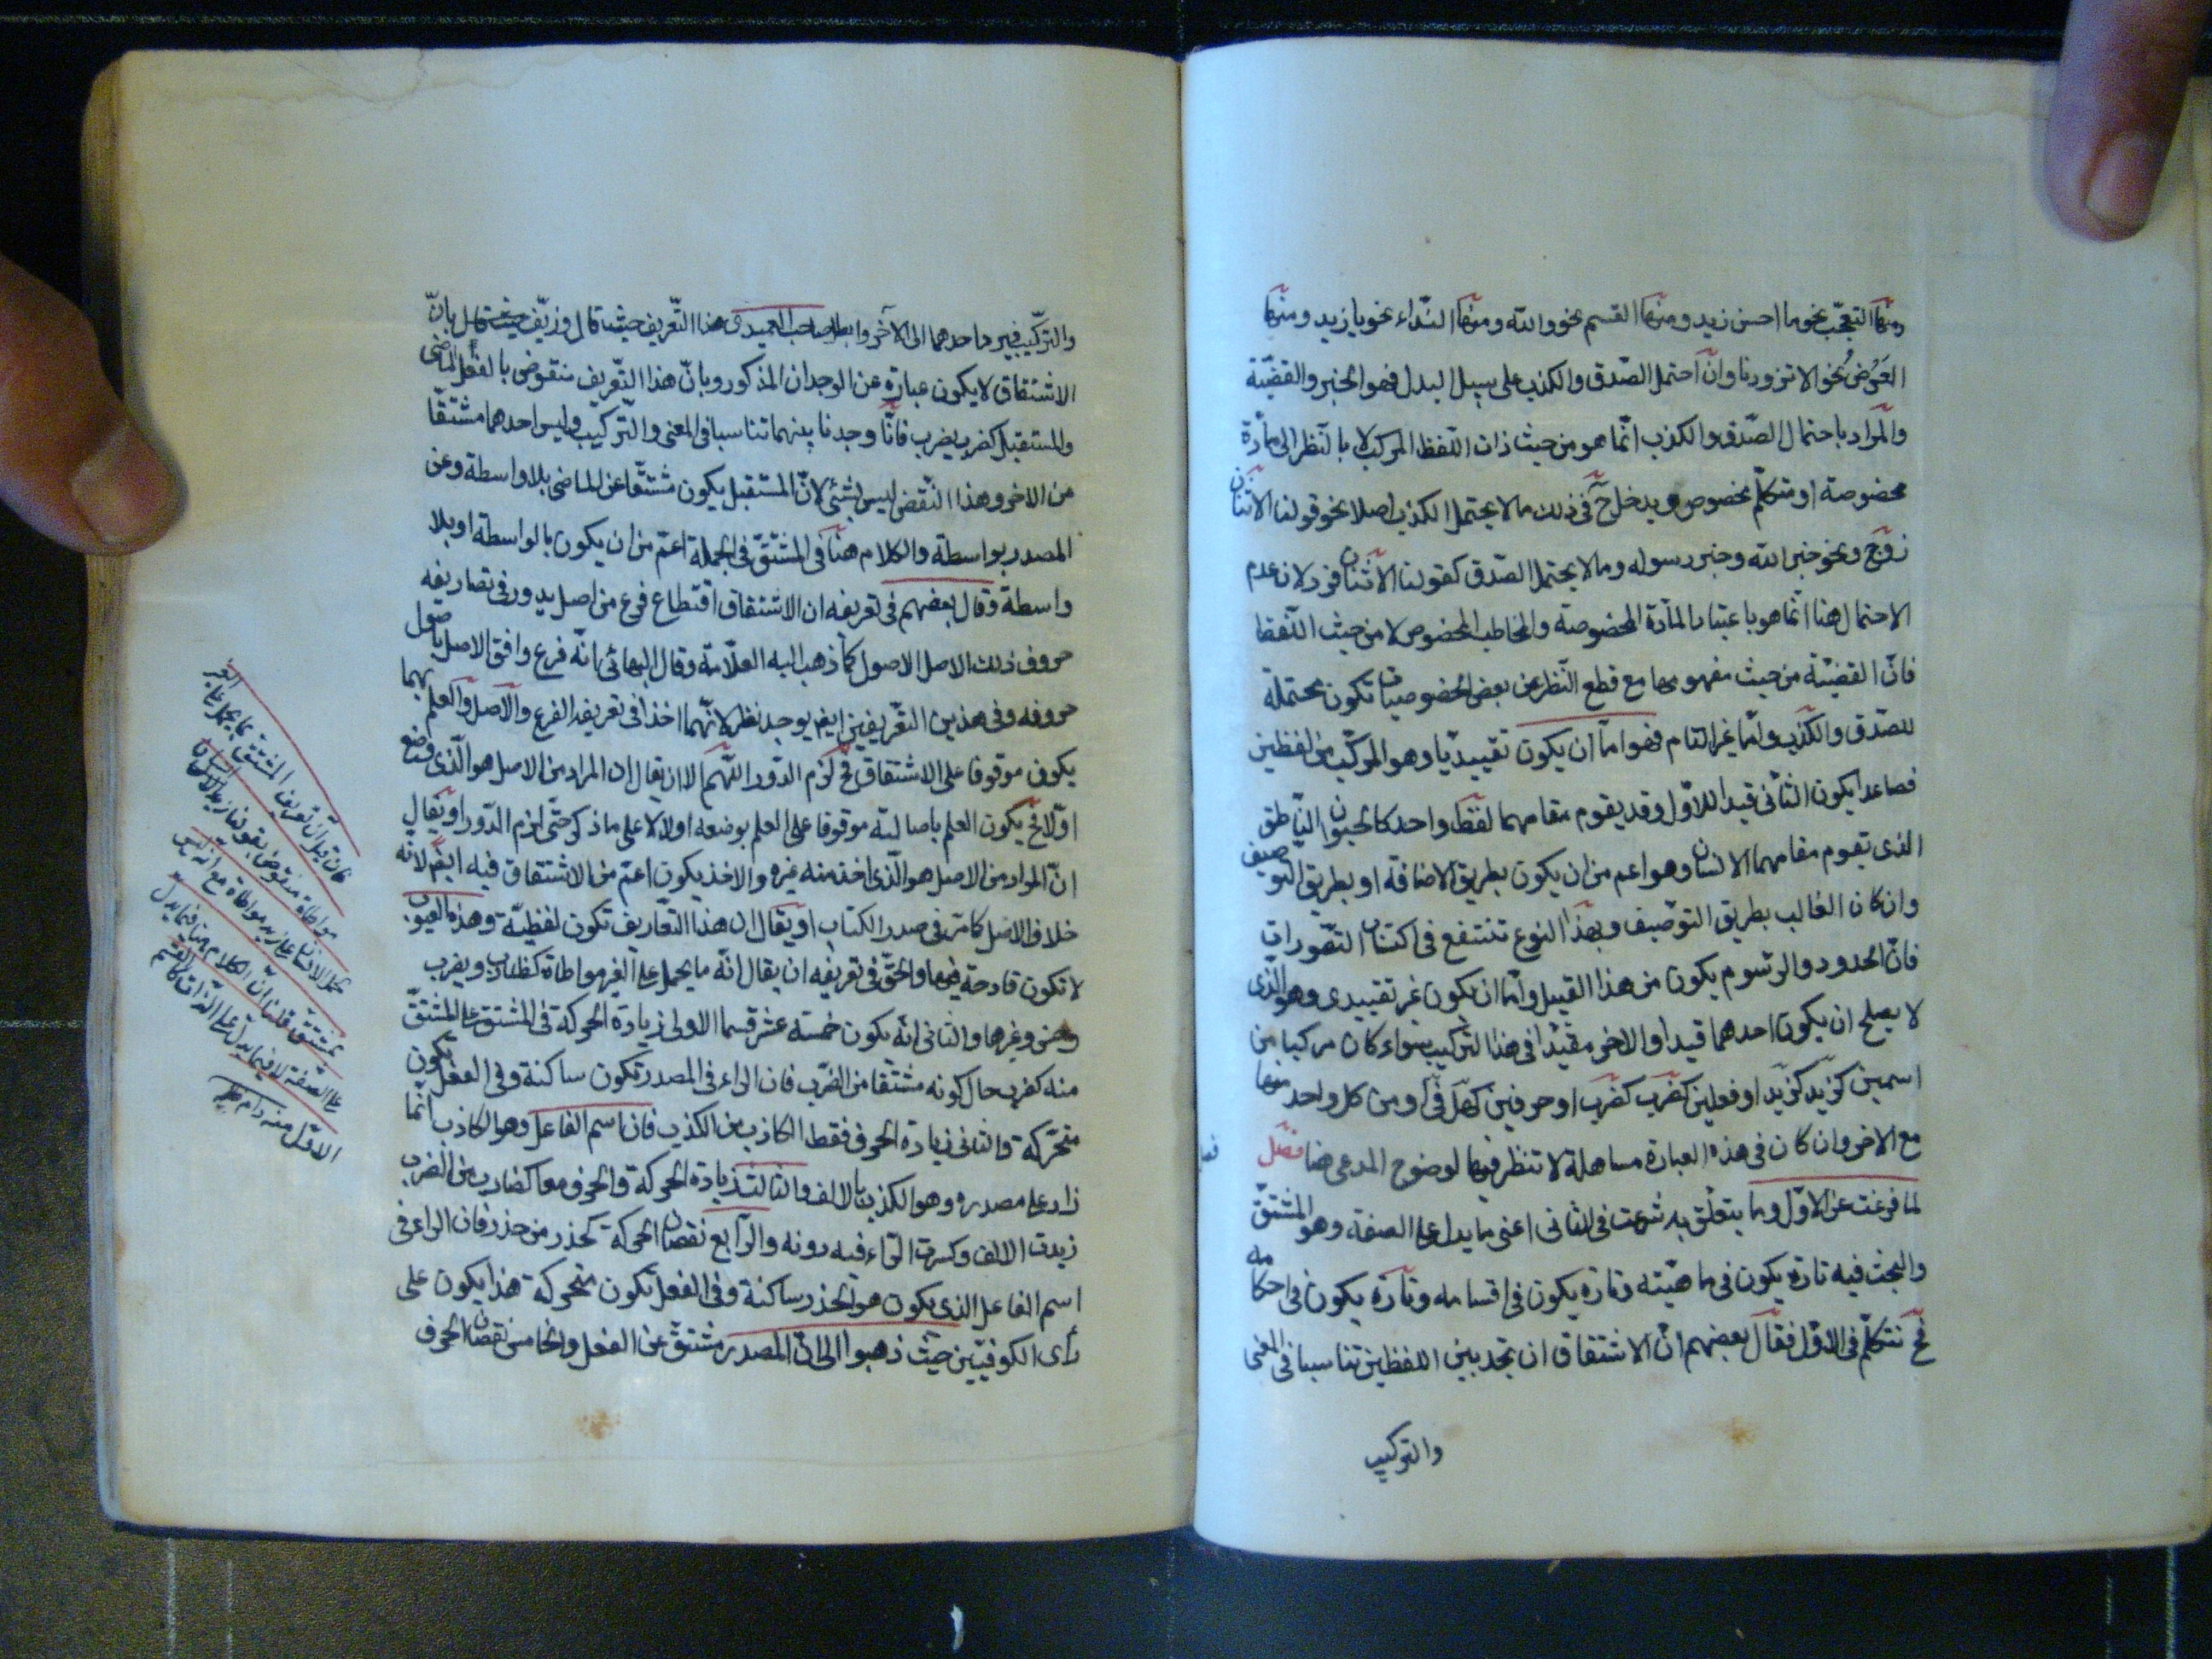 ومنها التعجّب نحو ما احسن زيد ومنها القسم نحو والله ومنها النّداء نحو يا زيد ومنها
العَرْض نحو الا تزورنا وان احتمل الصّدق والكذب على سبيل البدل فهو الخبر والقضيّة
والمراد باحتمال الصّدق والكذب انّما هو من حيث ذات اللّفظ المركب لا بالنّظر الى مادّة
مخصوصة او متكلّم مخصوص ويدخل ح في ذلك ما لا يحتمل الكذب اصلا نحو قولنا الاثنان
زوج ونحو خبر الله وخبر رسوله وما لا يحتمل الصّدق كقولنا الاثنان فرد لان عدم
الاحتمال هنا انّما هو باعتبار المادّة المخصوصة والمخاطب المخصوص لا من حيث اللّفظ
فانّ القضيّة من حيث مفهومها مع قطع النّظر عن بعض الخصوصيات تكون محتملة
للصّدق والكذب وامّا غير التام فهو امّا ان يكون تقييديّا وهو المركّب من لفظين
فصاعدا يكون الثّاني قيدا للاوّل وقد يقوم مقامهما لفظ واحد كالحيوان النّاطق
الذي تقوم مقامهما الانسان وهو اعم من ان يكون بطريق الاضافة او بطريق التوصيف
وان كان الغالب بطريق التوصيف وبهذا النوع تنتفع في اكتساب التّصورات
فانّ الحدود والرسوم يكون من هذا القبيل وامّا ان يكون غير تقييدي وهو الّذي
لا يصلح ان يكون احدهما قيدا والاخر مقيّدا في هذا التركيب سواء كان مركبا من
اسمين كزيد كزيد او فعلين كضرب كضرب او حرفين كهل في او من كل واحد منها
مع الاخر وان كان في هذه العبارة مساهلة لا تنظر فيها لوضوح المدعى هنا فصل
لما فرغت عن الاوّل وما يتعلّق به شرعت في الثاني اعنى ما يدل على الصفة وهو المشتقّ
والبحث فيه تارة يكون في ماهيّته وتارة يكون في اقسامه وتارة يكون في احكامه
فح نتكلّم في الاوّل فقال بعضهم انّ الاشتقاق ان تجد بين اللفظين تناسبا في المعنى
والتركيب
والتركيب فيرد احدهما الى الآخر وابطل صاحب العميدى هذا التّعريف حيث قال وزيّف بانّ
الاشتقاق لا يكون عبارة عن الوجدان المذكور وبانّ هذا التّعريف منقوض بالفعل الماضى
والمستقبل كضرب يضرب فانّا وجدنا بينهما تناسبا في المعنى والتركيب وليس احدهما مشتقّا
من الاخر وهذا النّقض ليس بشئ لانّ المستقبل يكون مشتقّا عن الماضى بلا واسطة وعن
المصدر بواسطة والكلام هنا في المشتقّ في الجملة اعمّ من ان يكون بالواسطة او بلا
واسطة وقال بعضهم في تعريفه ان الاشتقاق اقتطاع فرع من اصل يدور في تصاريفه
حروف ذلك الاصل الاصول كما ذهب اليه العلّامة وقال البهائى بانّه فرع وافق الاصل باصول
حروفه وفي هذين التّعريفين ايضا يوجد نظر لانّهما اخذا في تعريفه الفرع والاصل والعلم بهما
يكون موقوفا على الاشتقاق فح لزم الدّور اللّهم الا ان يقال ان المراد من الاصل هو الّذي وضع
اوّلا فح يكون العلم باصالته موقوفا على العلم بوضعه اولا لا على ما ذكر حتّى لزم الدّور او يقال
انّ المراد من الاصل هو الّذي اخذ منه غيره والاخذ يكون اعمّ من الاشتقاق فيه ايضا لانّه
خلاف الاصل كما مرّ في صدر الكتاب او يقال ان هذا التّعاريف تكون لفظيّة وهذه العيوب
لا تكون قادحة فيها والحقّ في تعريفه ان يقال انّه ما يحمل على الغير مواطاة كضارب ويضرب
وغيرها والثاني انّه يكون خمسة عشر قسما الاولى زيادة الحركة في المشتق على المشتقّ
منه كضرب حال كونه مشتقا من الضّرب فان الراء في المصدر تكون ساكنة وفي الفعل تكون
متحرّكة والثاني زيادة الحرف فقط الكاذب من الكذب فان اسم الفاعل وهو الكاذب انّما
زاد على مصدره وهو الكذب بالالف والثالث زيادة الحركة والحرف معا كضارب من الضرب
زيدت الالف وكسرت الرّاء فيه دونه والرّابع نقصان الحركة كحذر من حذر فان الراء في
اسم الفاعل الذي يكون هو الحذر ساكنة وفي الفعل تكون متحركة هذا يكون على
رأى الكوفيّين حيث ذهبوا الى انّ المصدر مشتقّ عن الفعل والخامس نقصان الحرف
فان قيل ان تعريف المشتق بما يحمل على الغير
مواطاة منقوض بقولنا زيد انسان
يحمل الانسان على زيد مواطاة مع انه ليس
بمشتقّ قلنا انّ الكلام هنا فيما يدل
على الصفة لا فيما يدل على الذّات
الاوّل منه